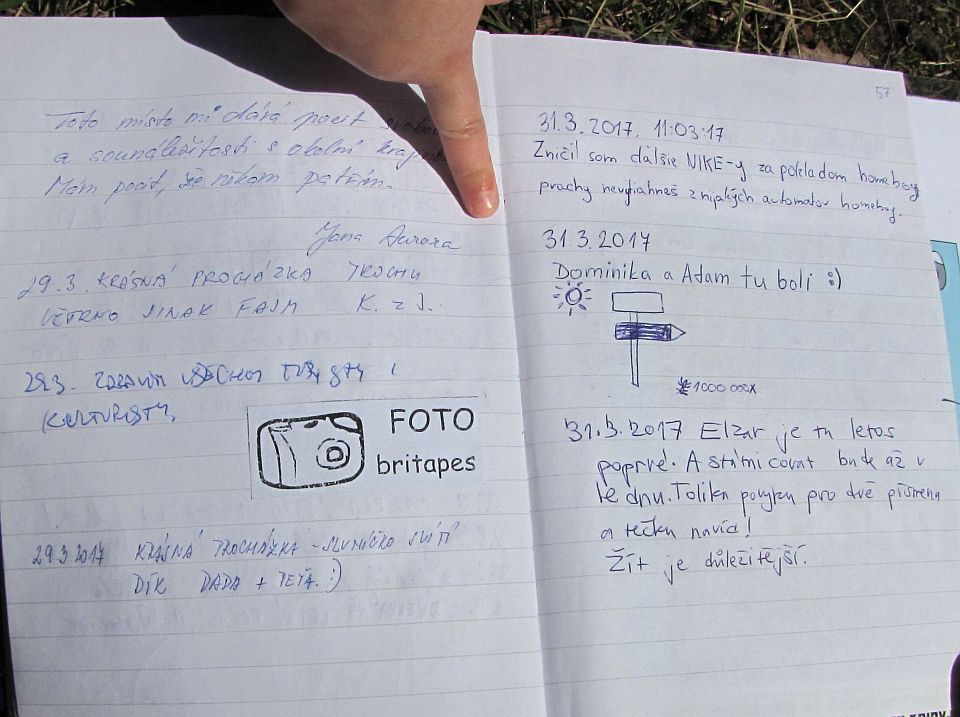 Toto místo mi dává pocit
a sounáležitosti s okolní
Mám pocit, že někam patřím.
Jana Aurora
29.3. KRÁSNÁ PROCHÁZKA TROCHU
VĚTRNO JINAK FAJN K. z J.
29.3. ZDRAVÍM VŠECHNY TURISTY I
KULTURISTY,
FOTO
britapes
29.3.2017 KRÁSNÁ PROCHÁZKA - SLUNÍČKO SVÍTÍ
DÍK DADA + PEŤA :)
57
31.3.2017. 11:03:17
Zničil som dálšie NIKE-y za pokladom homeboy
prachy nevytiahneš z nijakých automatov homeboy.
31.3.2017
Dominika a Adam tu boli :)
1000 000x
31.3.2017 Elzar je tu letos
poprvé. A státnicovat bude až v
le dnu. Tolika povyku pro dvě písmena
a tečku navíc!
Žít je důležitější.